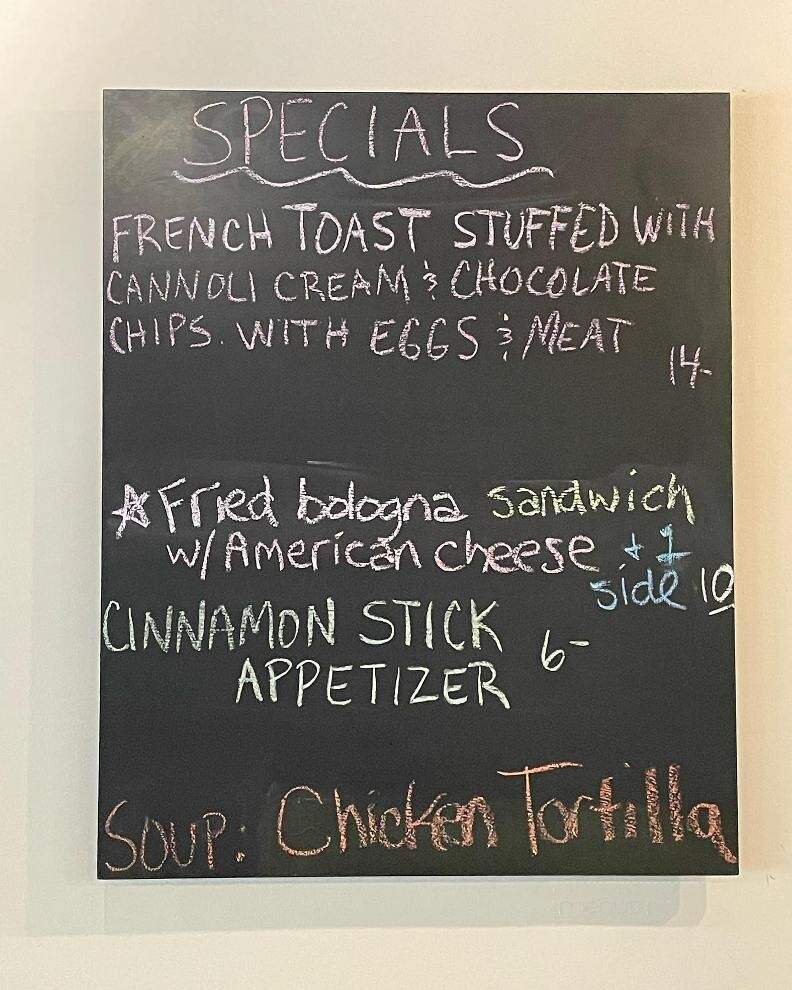 SPECIALS
FRENCH TOAST STUFFED WITH
CANNOLI CREAM & CHOCOLATE
CHIPS. WITH EGGS & MEAT
14-
☆Fried bologna sandwich
w/American cheese + 1
side 10
CINNAMON STICK
APPETIZER 6-
SOUP: Chicken Tortilla